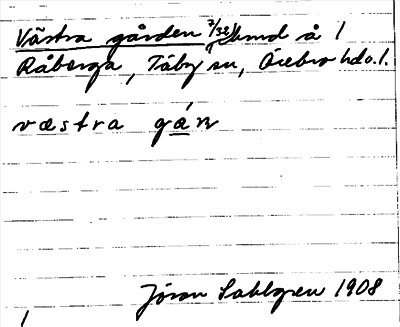 Västra gården 7/32 hmd å 1
Råberga, Täby sn, Örebro hd o. l.
væstra gán
Jöran Sahlgren 1908
1